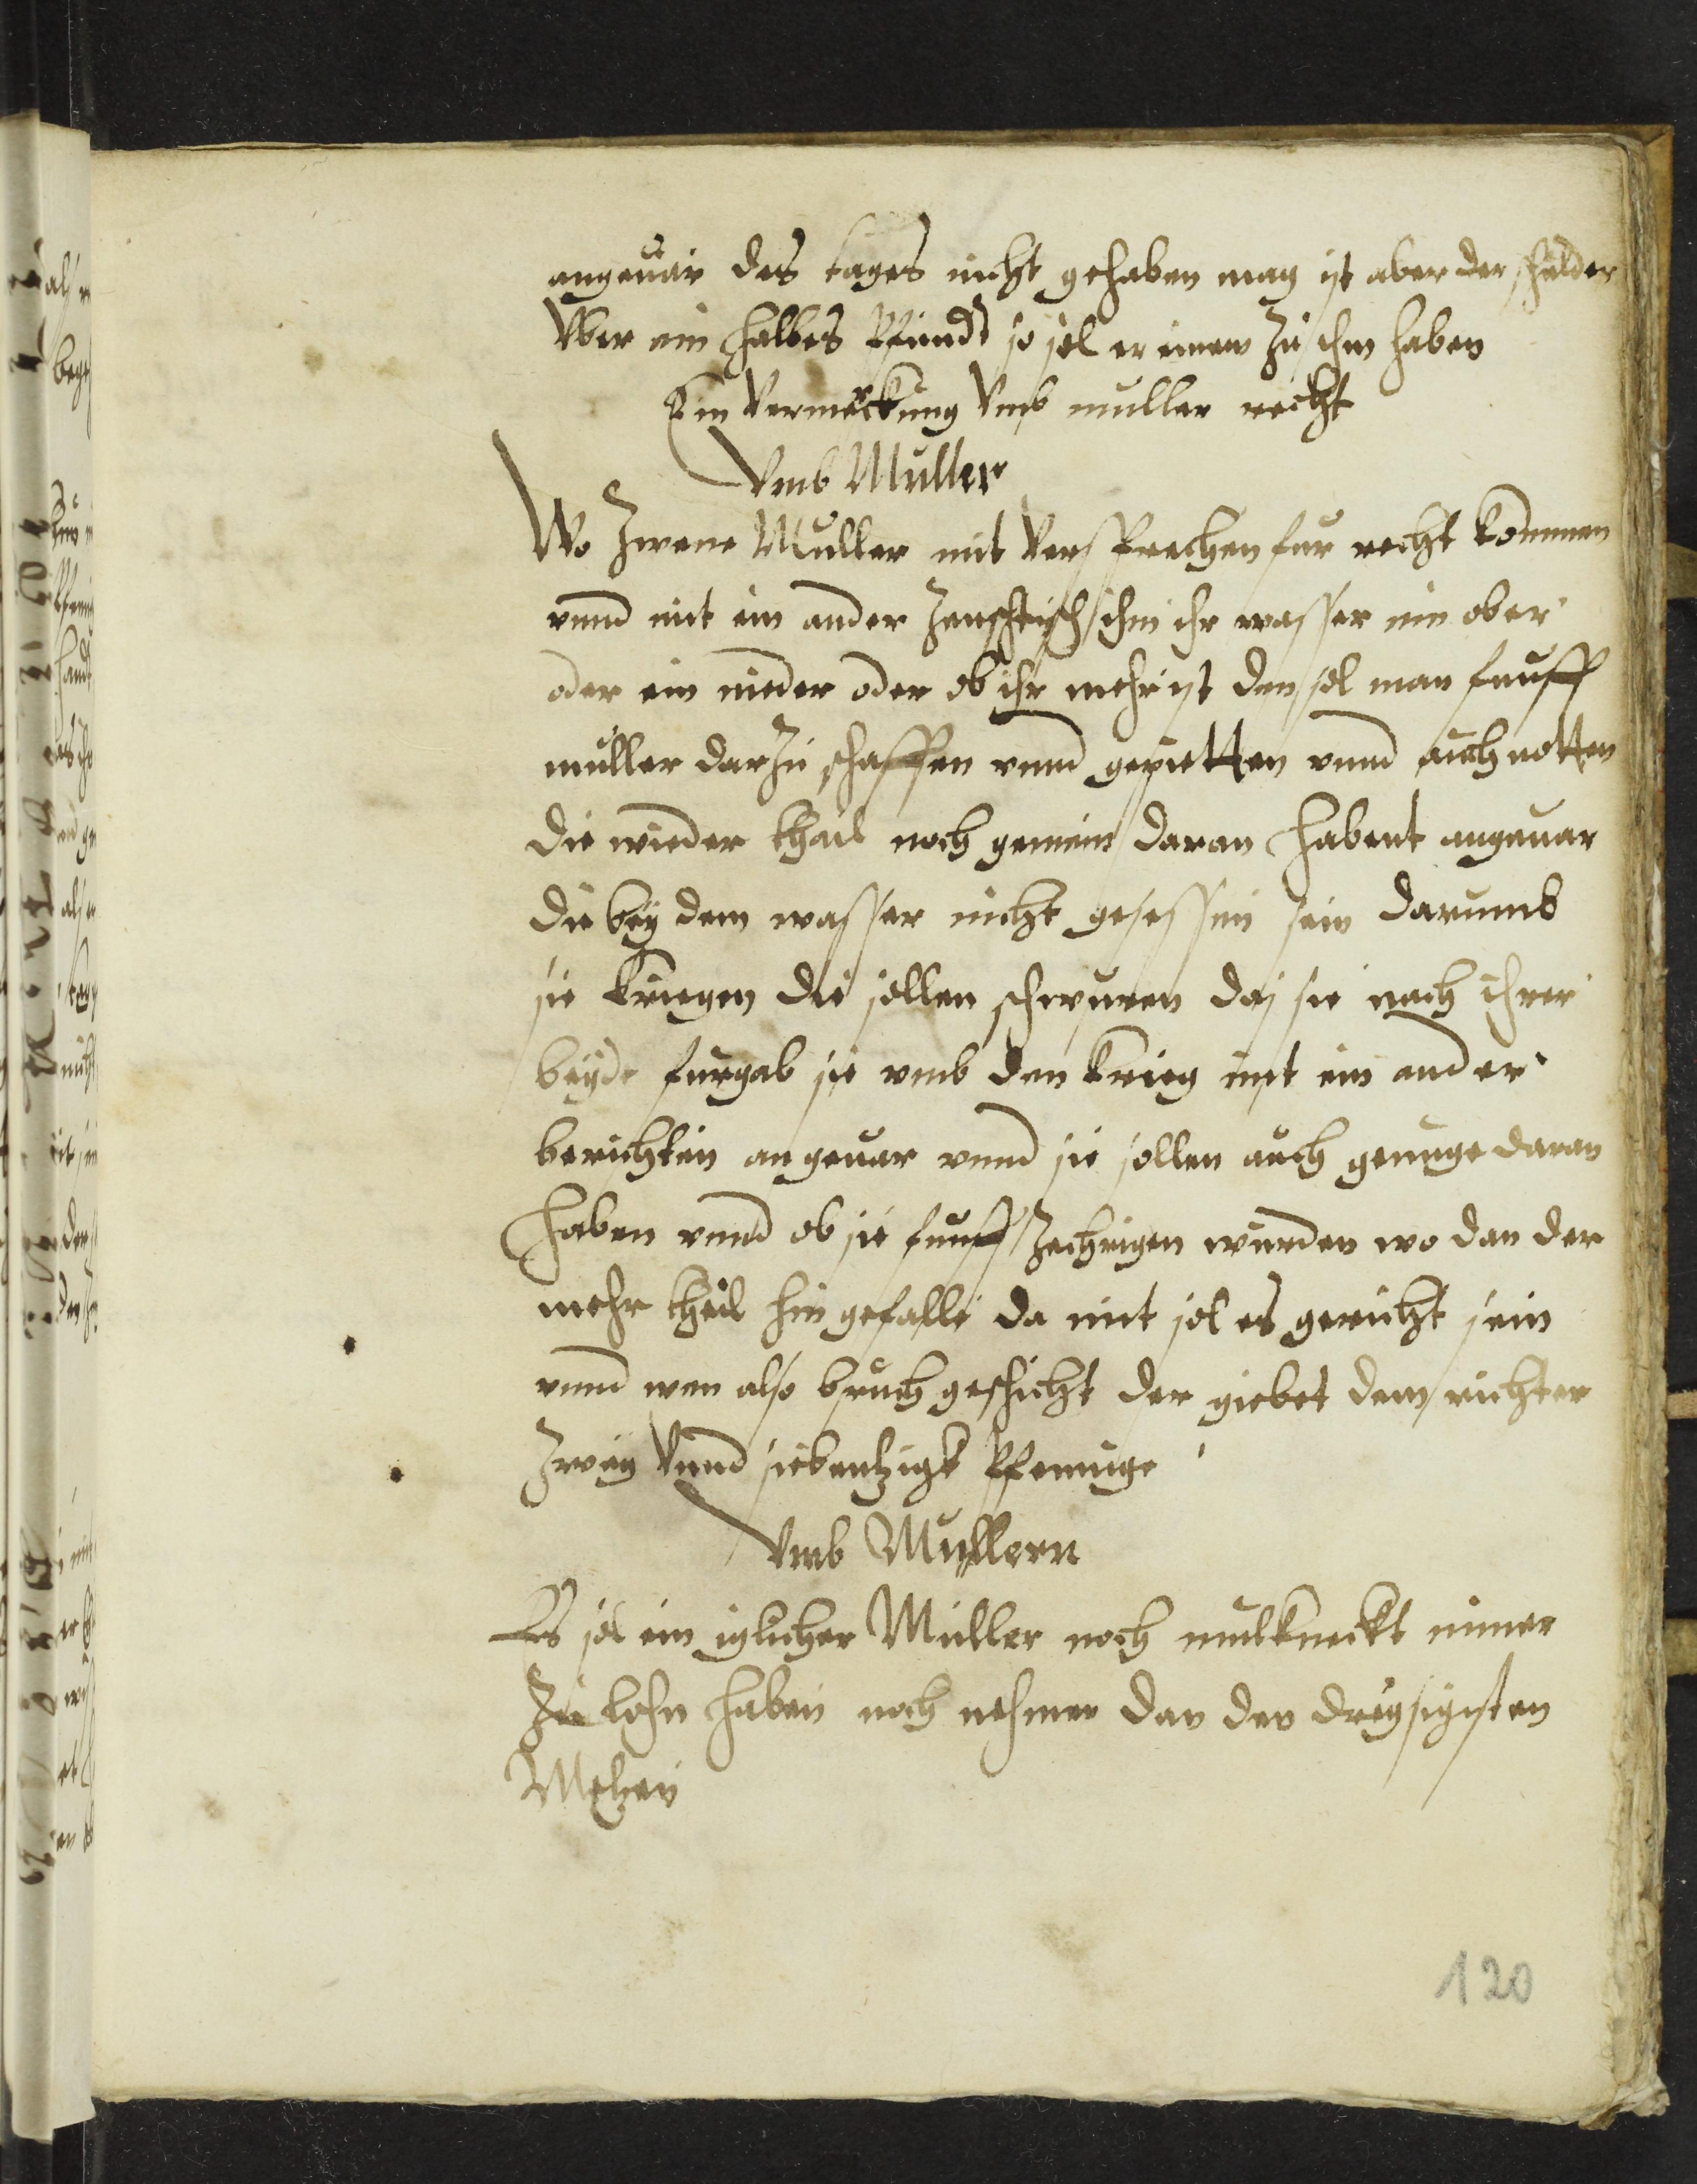 angeuar des tages nicht gehaben mag ist aber der schulder
Vber ein halbes Pfundt so sol er einen zu ihm haben
Ein vermerckung vmb muller recht
Vmb Muller
Wo zwene Muller mit versprechen fur recht kommen
vnnd mit ein ander ihr wasser ein ober
oder ein nieder oder ob ihr mehr ist den sol man funff
muller darzu schaffen vnnd gepietten vnnd auch notten
die wieder theil noch gemein daran habent angeuar
die bey dem wasser nicht gesessen sein darumb
sie kriegen die sollen schweren das sie nach ihrer
beyde furgab sie vmb den krieg mit ein ander
berichten angeuar vnnd sie sollen auch genuge daran
haben vnnd ob sie funff zechrigen wurden wo dan der
mehr theil hin gefalle da mit sol es gericht sein
vnnd wen also bruch geschicht der giebet dem richter
zwey vnnd siebentzigk Pfennige
Vmb Mullern
Es sol ein iglicher Muller noch mulkneckt nimer
zu lohn haben noch nehmen dan den dreysigisten
Metzen
120